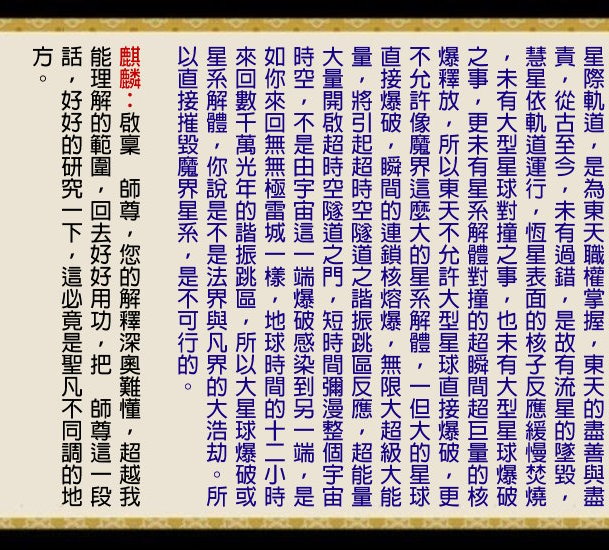 星際軌道，是為東天職權掌握，東天的盡善與盡
責，從古至今，未有過錯，是故有流星的墜毀，
慧星依軌道運行，恆星表面的核子反應緩慢焚燒
，未有大型星球對撞之事，也未有大型星球爆破
之事，更未有星系解體對撞的超瞬間超巨量的核
爆釋放，所以東天不允許大型星球直接爆破，更
不允許像魔界這麼大的星系解體，一但大的星球
直接爆破，瞬間的連鎖核熔爆，無限大超級大能
量，將引起超時空隧道之諧振跳區反應，超能量
大量開啟超時空隧道之門，短時間彌漫整個宇宙
時空，不是由宇宙這一端爆破感染到另一端，是
如你來回無無極雷城一樣，地球時間的十二小時
來回數千萬光年的諧振跳區，所以大星球爆破或
星系解體，你說是不是法界與凡界的大浩劫。所
以直接摧毀魔界星系，是不可行的。
麒麟：啟稟　師尊，您的解釋深奧難懂，超越我
能理解的範圍，回去好好用功，把　師尊這一段
話，好好的研究一下，這必竟是聖凡不同調的地
方。